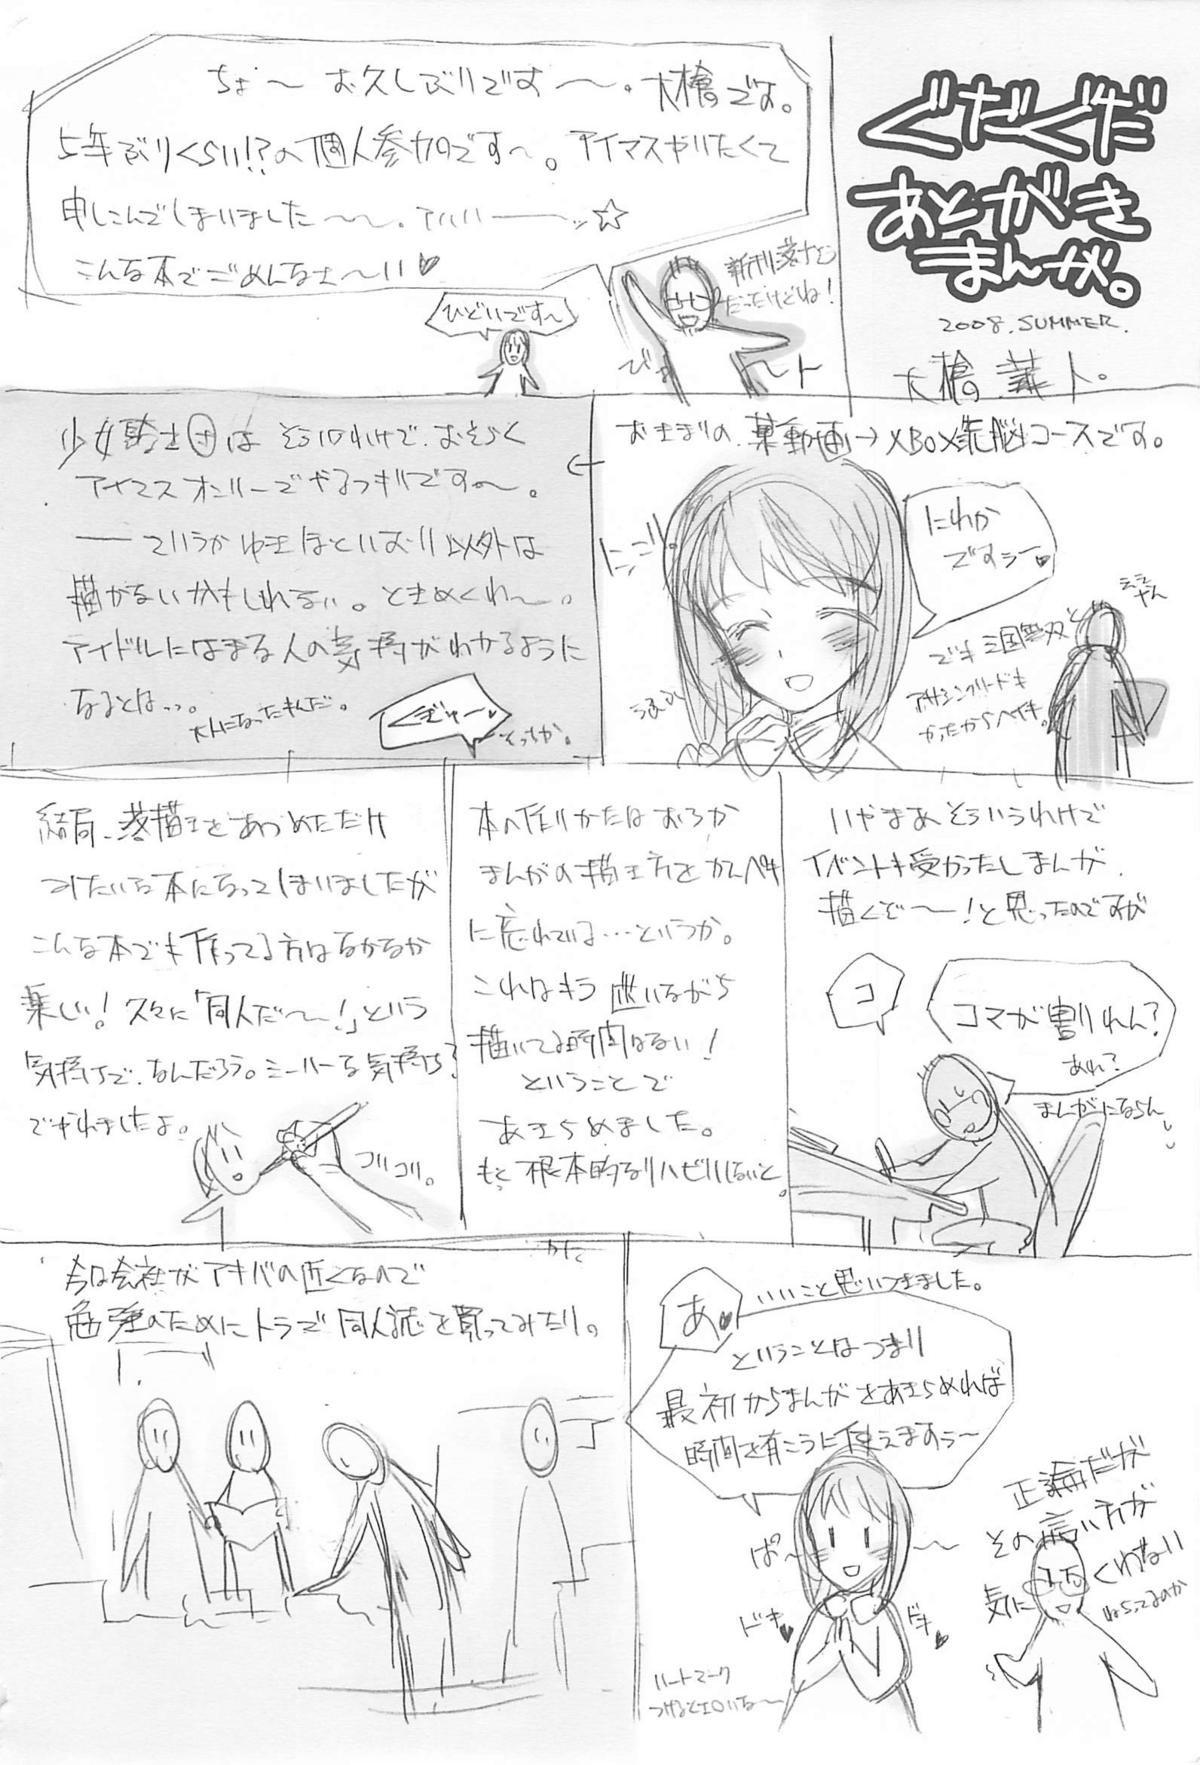 ぐだぐだ
あとがき
まんが。
2008.SUMMER.
ちょ〜お久しぶりです〜。大槍です。
5年ぶりくらい!?の個人参加です〜。アイマスやりたくて
申しこんでしまいました〜〜。アハハーーッ☆
こんな本でごめんなさ〜い♥
新刊落ちと
だったけどね!
ひどいです〜
おきまりの、某動画→XBOX洗脳コースです。
にわか
ですぅー♥
ニコニコ
ええ
やん
でも三国無双と
アサシンクリードも
かったからヘイキ。
少女騎士団はそういうわけで、おそらく
アイマスオンリーでやるつもりです〜。
ーーていうかゆきほといおり以外は
描かないかもしれない。ときめくわ〜。
アイドルにはまる人の気持がわかるように
なるとはっっ。
大人になったもんだ。
そっちか。
いやまあそういうわけで
イベントも受かったしまんが
描くぞ〜〜!と思ったのですが
コ
コマが割れん?
あれ?
まんがにならん
本の作りかたはおろか
まんがの描き方をカンペキ
に忘れている…というか。
これはもう迷いながら
描いてる時間はない!
ということで
あきらめました。
もっと根本的なリハビリしないと。
結局、落描きをあつめただけ
みたいな本になってしまいましたが
こんな本でも作ってる方はなかなか
楽しい!久々に「同人だ〜〜!」という
気持ちで、なんだろう。ミーハーな気持ち?
でやれましたよ。
コリコリ。
あ♥
いいこと思いつきました。
ということはつまり
最初からまんがをあきらめれば
時間を有こうに使えますぅ〜
ぱ〜
ドキ♥
ドキ♥
ハートマーク
つけるとエロいな〜
正論だが
その言い方が
気にくわない
ねらってるのか
今は会社がアキバの近くなので
勉強のためにトラで同人誌を買ってみたり。